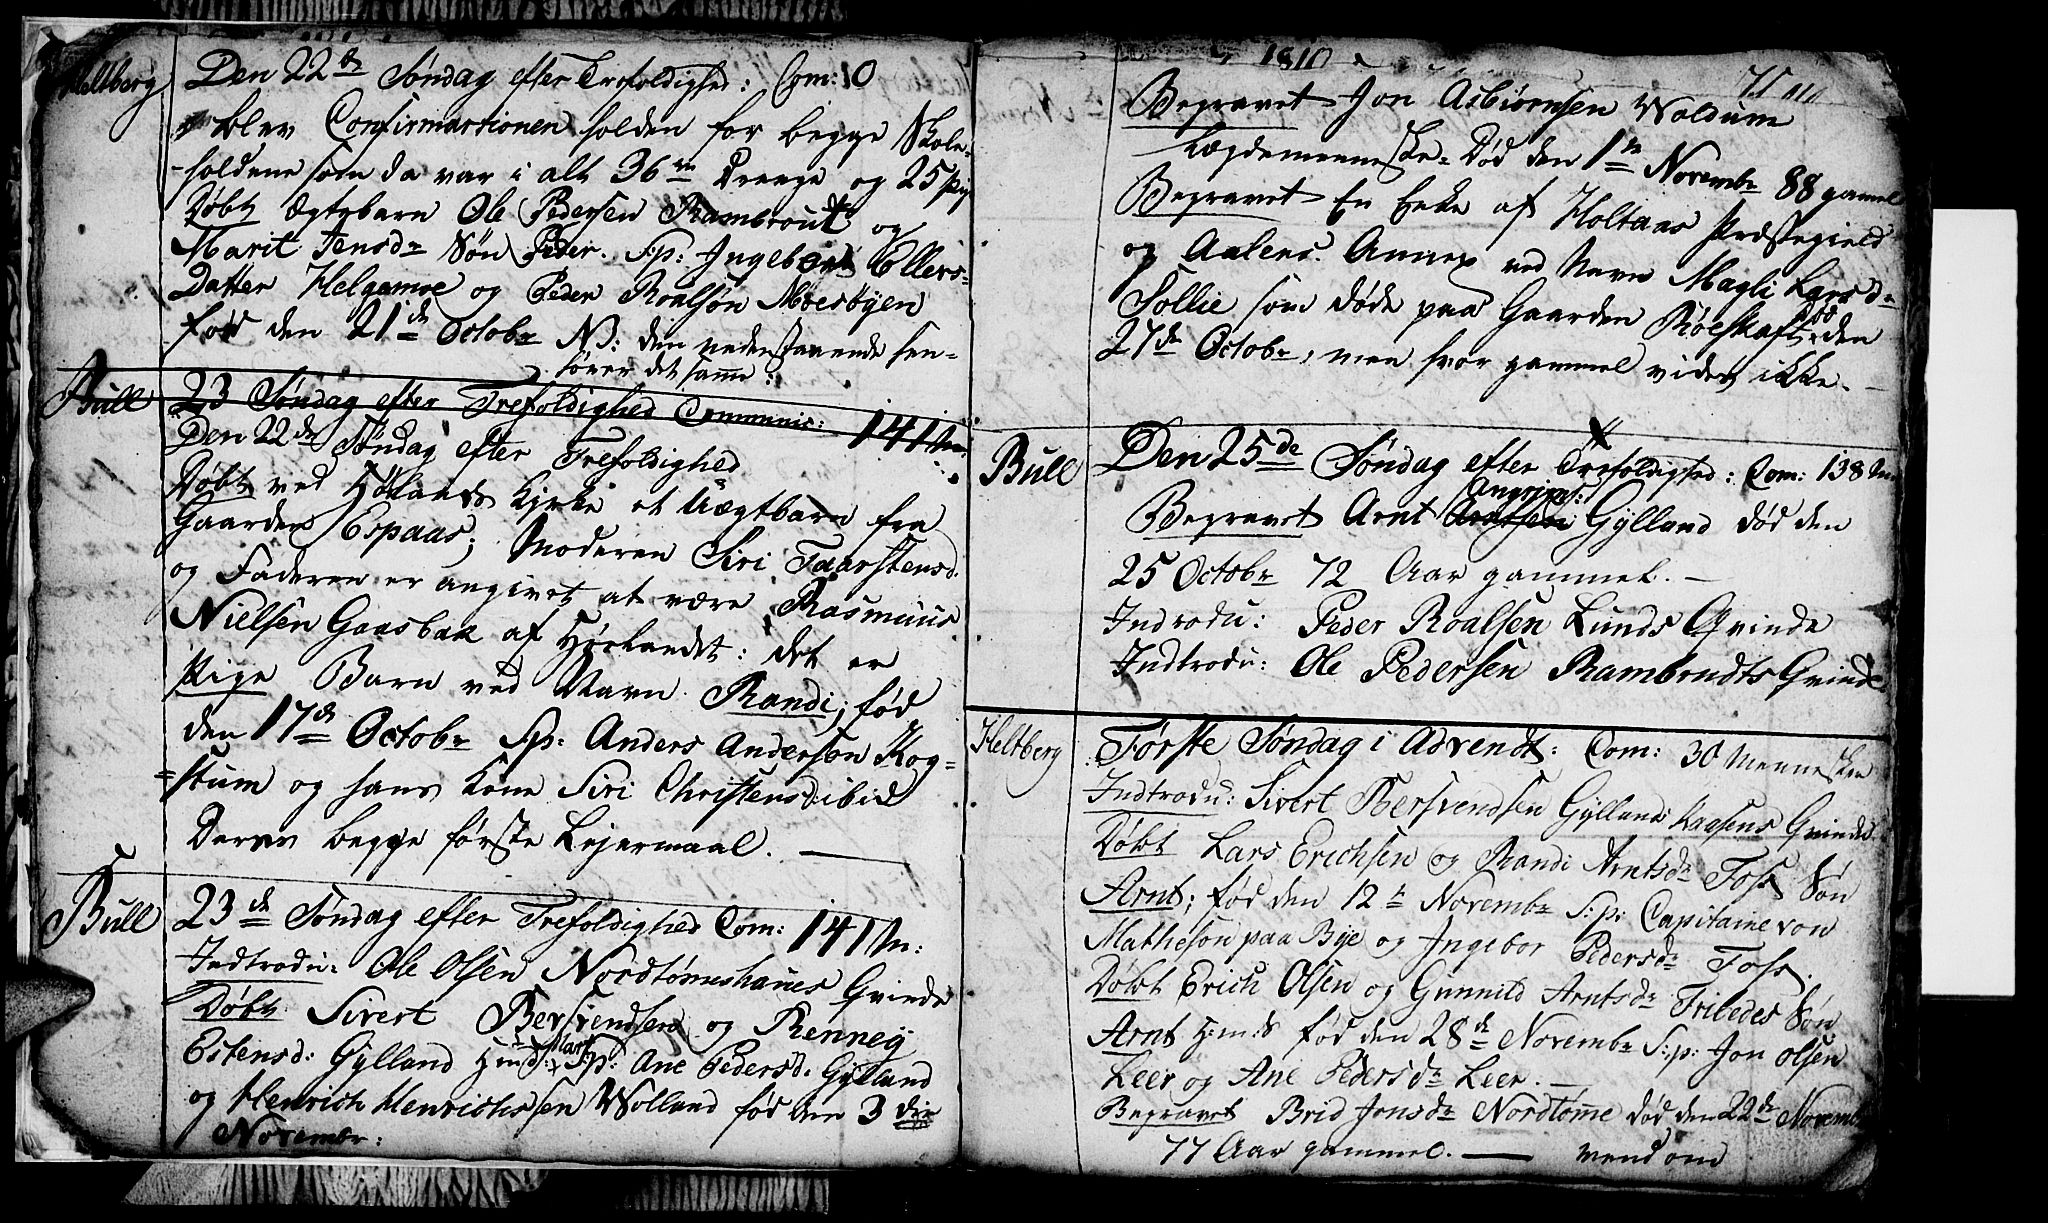 Heltberg
Den 22de Søndag efter Trefoldighed: Com: 0
blev Confirmationen holden for begge Skole-
holdene som da var i alt 36 Drenge og 25 Pig
Døbt Ægtebarn Ole Pedersen Rambrout og
Marit Jensdr Søn Peder. S:p: Ingebor Ellers-
Datter Helgemoe og Peder Roalsøn Moesøyen
fød den 21de Octobr NB: den nedenstaaende hen-
hører det samme:
Bull
23 Søndag efter Trefoldighed Communic: 141 M
Den 22de Søndag efter Trefoldighed
Døbt ved Hølands Kirke et Uægtbarn fra
Gaarden Espaas; Moderen Siri Taarstensd.
og Faderen er angivet at være Rasmuus
Nielsen Gaasbak af Hølandet: det er
Pige Barn ved Navn Randi; fød
den 17de Octobr Sp: Anders Anderson Kog-
stum og hans Kone Siri Christensd: ibid
Deres begge første Lejermaal.
Bull
23de Søndag efter Trefoldighed Com: 141 M:
Indtrodu: Ole Olsen Nordtømeshaues Qvinde
Døbt Sivert Bersvendsen og Renneg
Estensd: Gylland Marit
S:p: Ane Pedersd. Gylland
og Henrich Henrichssen Wolland fød den 3die
Novembr:
1810
75
Begravet Jon Asbiørnsen Woldum
Lægdemenneske. Død den 1te Novembr 88 gamel
Begravet En Enke af Holtaas Præstegield
og Aalens Annex ved Navn Magli Larsdr
Sollie som døde paa Gaarden Røeskaft den
27de Octobr, men hvor gammel vides ikke.
Bull
Den 25de Søndag efter Trefoldighed: Com: 138 M
Begravet Arnt Gylland død den
25 Octobr 72 Aar gammel.
Indrodu: Peder Roalsen Lunds Qvinde
Indtrodu: Ole Pedersen Rambrudts Qvinde
Heltberg
Første Søndag i Advendt: Com: 30 Mennesker
Indtrodu: Sivert Bersvendsen Gylland Qvinde
Døbt Lars Erichsen og Randi Arntsdr Foss Søn
Arnt; fød den 12te Novembr S:p: Capitaine von
Matheson paa Bye og Ingebor Pedersdr Foss.
Døbt Erich Olsen og Gunnild Arntsdr Søn
Arnt fød den 28de Novembr S:p: Jon Olsen
Leer og Ane Pedersdr Leer.
Begravet Brid Jonsdr Nordtømme død den 22de Novemb
77 Aar gammel. vend om